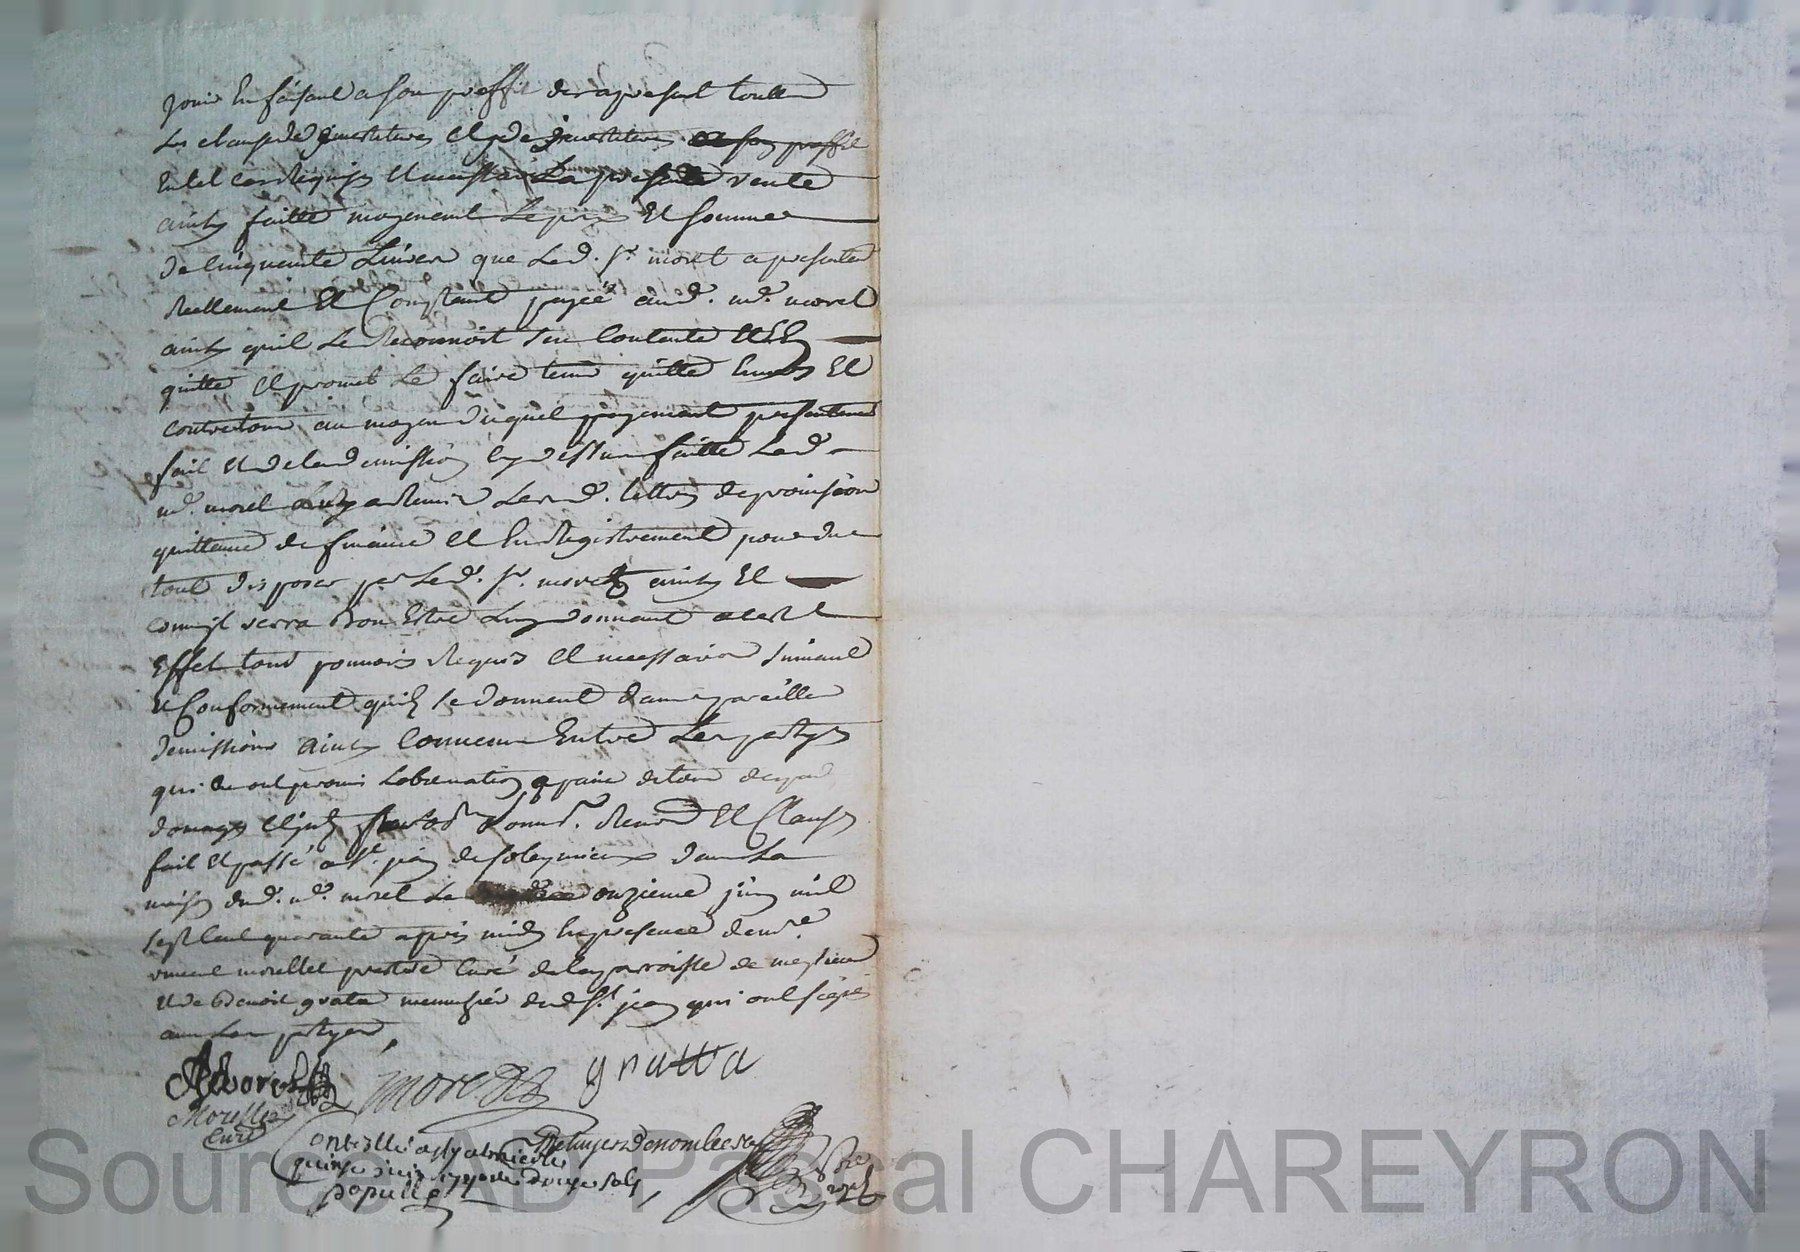 jouir En faisant a son proffit des apresent touttes
Les clauses de
En tel cas Requises Et necessaires La presente vente
ainsy faitte moyenant Le prix Et somme
de Cinquante Livres que Led. Sr. morel a presentem
Reellement Et Comptant payée aud. md. morel
ainsy quil Le Reconnoit sen Contente Et
quitte Et promet Le faire tenir quitte Envers Et
contre tous au moyen duquel payement presentement
fait Et de la demission cy dessus faitte Led.
md. morel Luy a Remis Lesd. lettres de provision
quittance de finance Et Enregistrement pour du
tout disposer par Led. Sr. morel ainsy Et
comme il verra Bon Estre Luy donnant a cest
Effet tout pouvoir Requis Et necessaire suivant
Et Conformement quils se donnent dans pareilles
demissions ainsy Convenu Entre Les partyes
qui ont promis Lobservation a paine de tous depans
domages Et Renon Et Clauses
fait Et passé a St. jean de soleymieux dans La
maison dud. md. morel Le onzieme juin mil
sept Cent quarante apres midy En presence de mre
vincent morellet prestre Curé de la parroisse de
Et de Benoit grata menuzier dud. St. jean qui ont signé
avec Les partyes
Morel
Morel
gratta
Morellet
Curé
Controllé a St
quinze juin douze sols
Source AD Pascal CHAREYRON